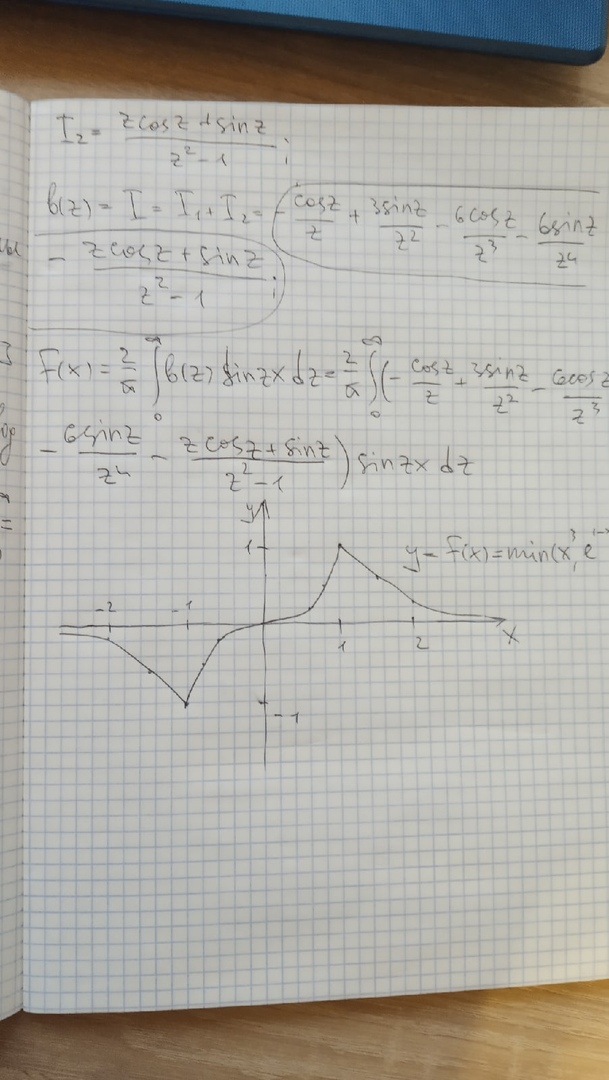 I₂ = (z cos z + sin z)/(z² - 1) ;
b(z) = I = I₁ + I₂ = - cosz/z + 3sinz/z² - 6cosz/z³ - 6sinz/z⁴
- (z cos z + sin z)/(z² - 1) ;
F(x) = 2/π ∫₀^∞ b(z) sin zx dz = 2/π ∫₀^∞ (- cosz/z + 3sinz/z² - 6cosz/z³
- 6sinz/z⁴ - (z cos z + sin z)/(z² - 1)) sin zx dz
y
1 y = f(x) = min(x³, e
-2 -1
1 2 x
-1